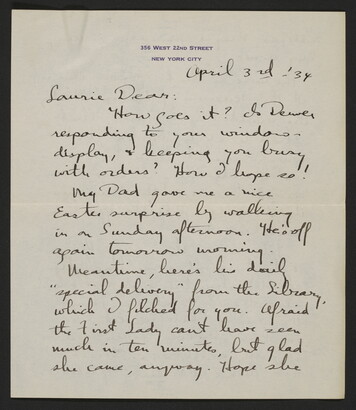 356 WEST 22ND STREET
NEW YORK CITY
April 3rd - '34
Laurie Dear:
How goes it? Is Denver
responding to your window-
display, & keeping you busy
with orders? How I hope so!
My Dad gave me a nice
Easter surprise by walking
in on Sunday afternoon. He's off
again tomorrow morning.
Meantime, here's his daily
"special delivery" from the Library,
which I filched for you. Afraid
the First Lady can't have seen
much in ten minutes, but glad
she came, anyway. Hope she